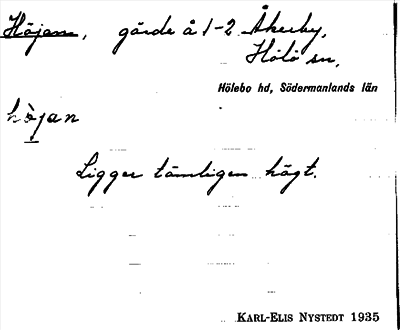 Höjan, gärde å 1-2 Åkerby,
Hölö sn,
Hölebo hd, Södermanlands län
hö̀jan
Ligger tämligen högt.
KARL-ELIS NYSTEDT 1935